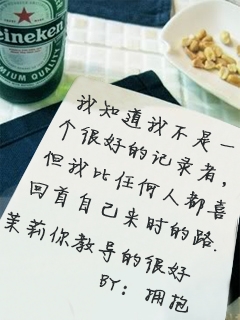 Heineken
PREMIUM QUALITY
我知道我不是一
个很好的记录者,
但我比任何人都喜
回首自己来时的路.
茉莉你教导的很好
BY: 拥抱